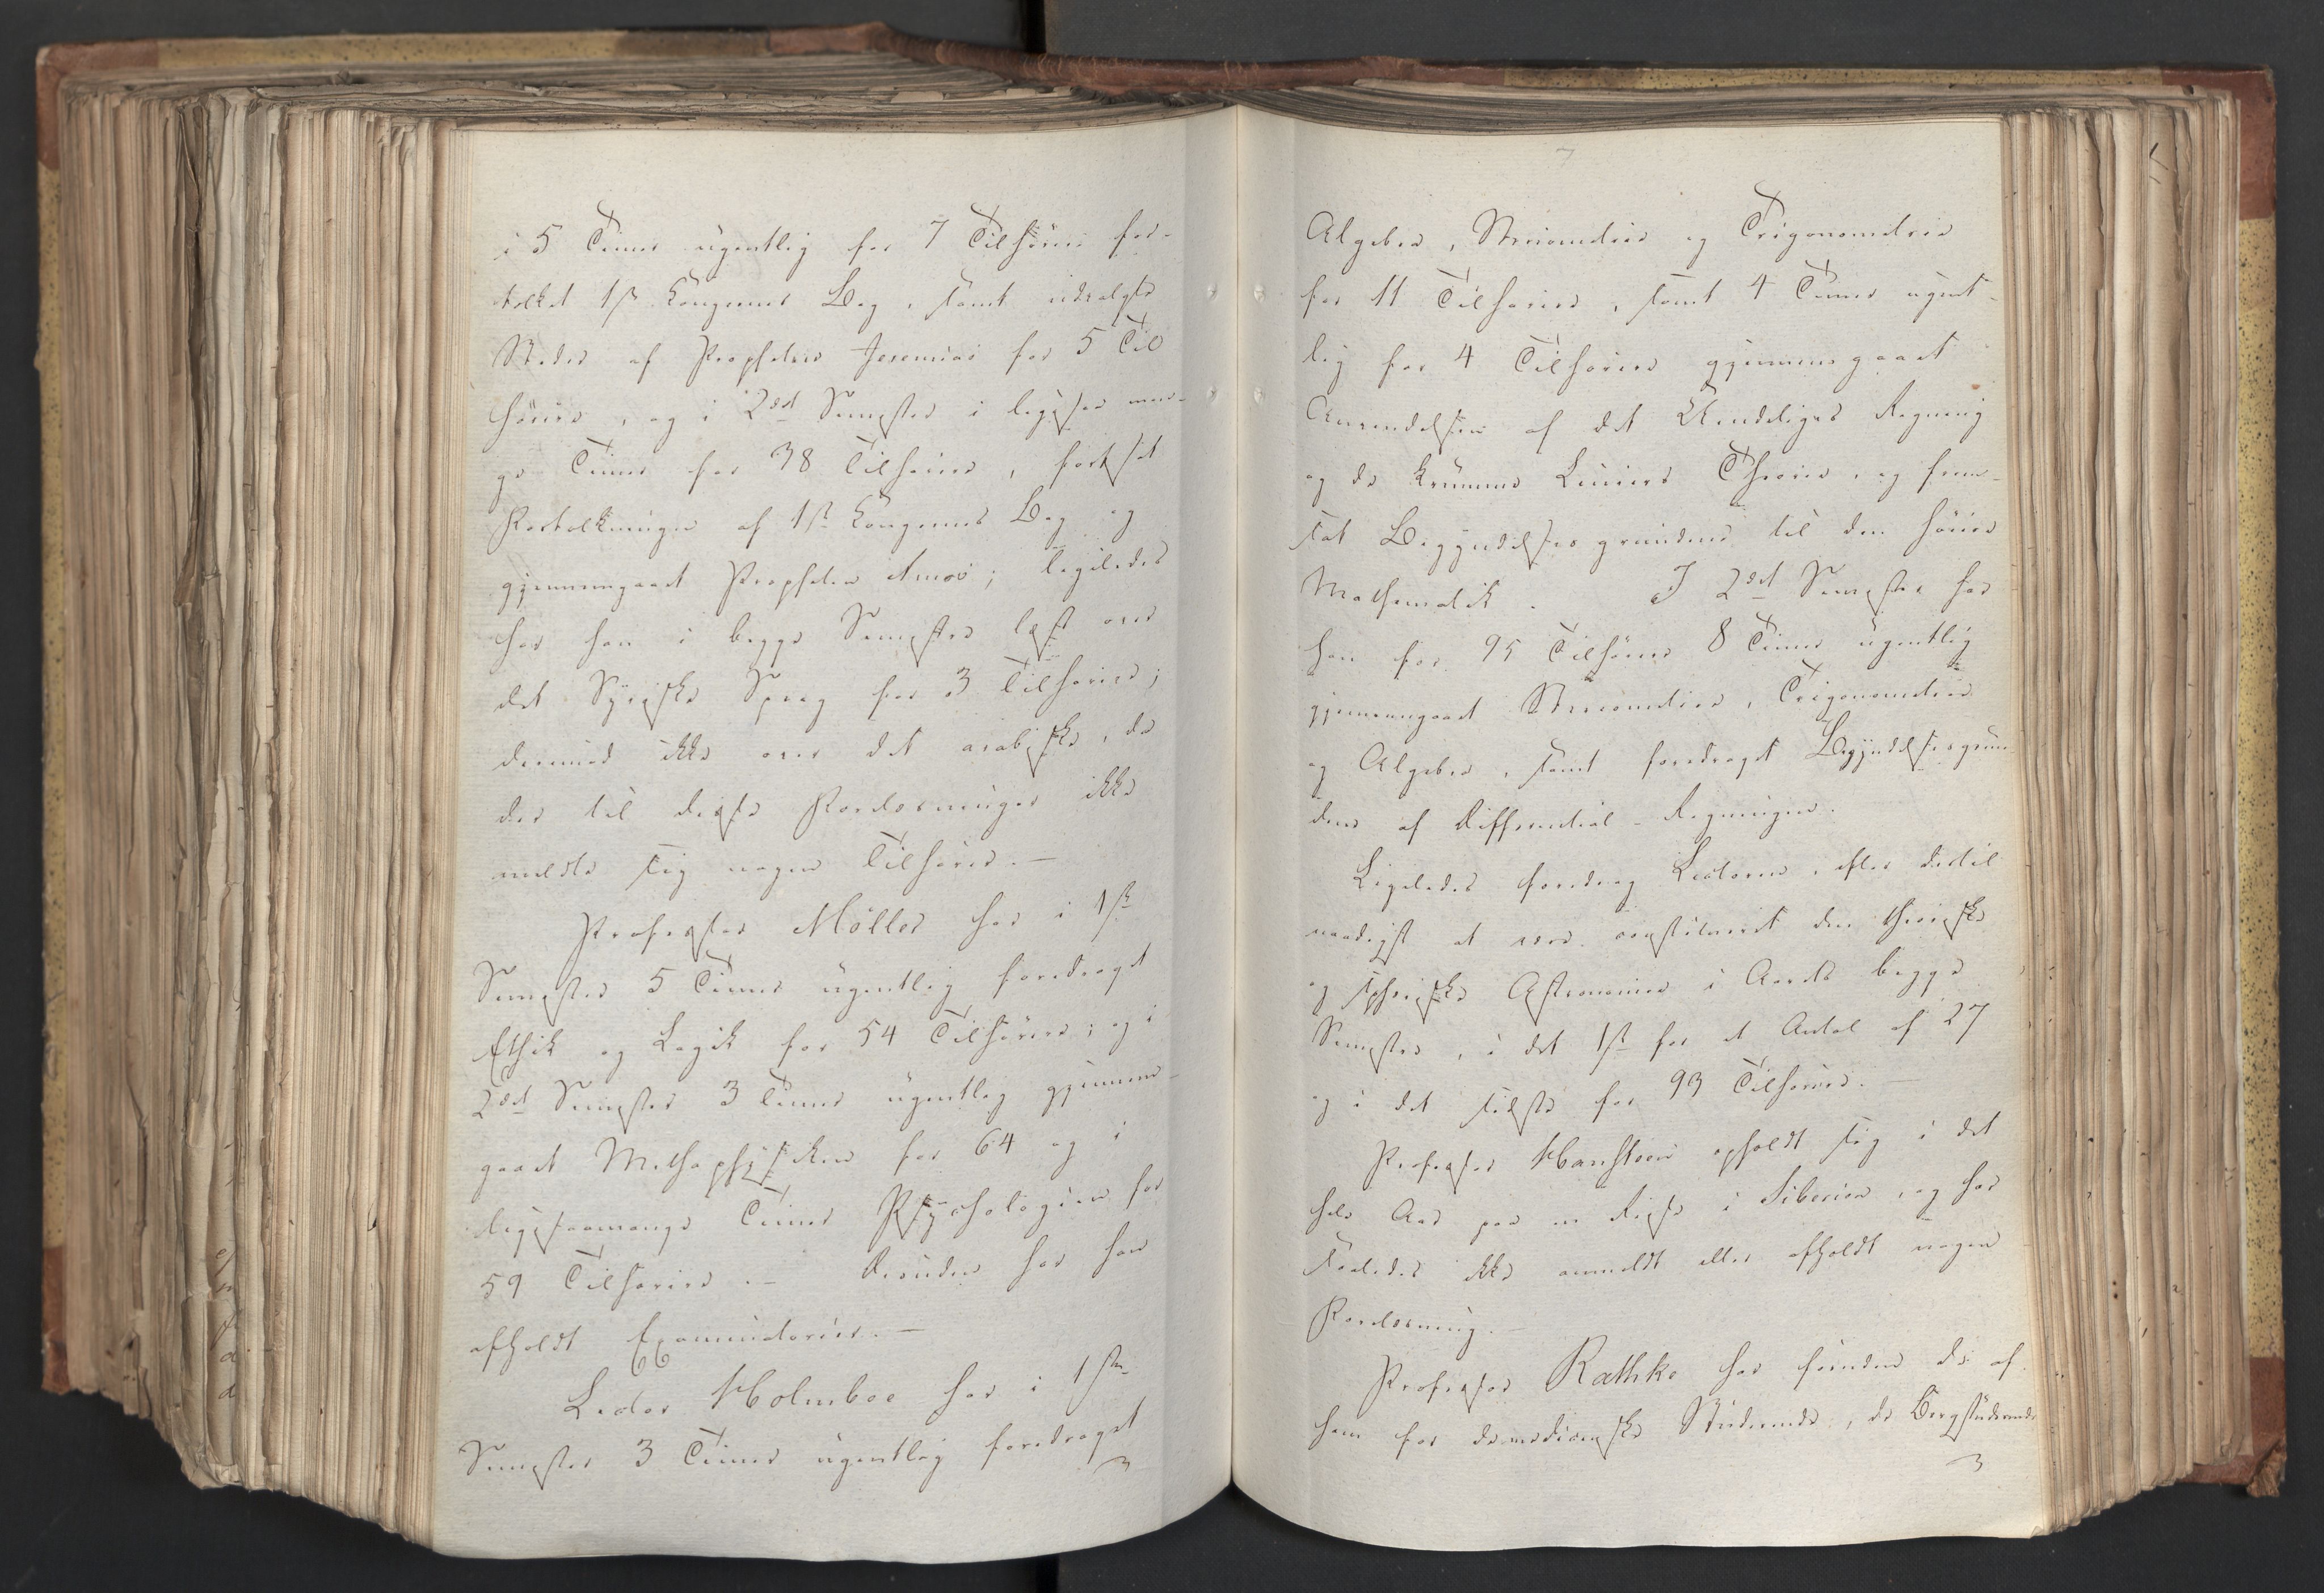 i 5 Timer ugentlig for 7 Tilhørere for-
tolket 1ste Kongernes Bog, samt udvalgte
Steder af Propheten Jeremias for 5 Til
hørere, og i 2det Semester i ligesaa man-
ge Timer for 38 Tilhørere, fortsat
Fortolkningen af 1ste Kongernes Bog og
gjennemgaaet Propheten Amos; ligeledes
har han i begge Semestre læst over
det Syriske Sprog for 3 Tilhørere;
derimod ikke over det arabiske, da
der til disse Forelæsninger ikke
meldte sig nogen Tilhører.—
Professor Møller har i 1ste
Semester 5 Timer ugentlig foredraget
Ethik og Logik for 54 Tilhørere; og i
2det Semester 3 Timer ugentlig gjennem-
gaaet Methaphysiken for 64 og i
ligesaamange Timer Psychologien for
59 Tilhørere.— Desuden har han
afholdt Examinatorier.—
Lector Holmboe har i 1ste
Semester 3 Timer ugentlig foredraget
Algebra, Stereometrie og Trigonometrie
for 11 Tilhørere, samt 4 Timer ugent-
lig for 4 Tilhørere gjennemgaaet
Anvendelsen af det Uendeliges Regning
og de krumme Liniers Theorie, og frem-
sat Begyndelsesgrundene til den høiere
Mathematik. I 2det Semester har
han for 95 Tilhørere 8 Timer ugentlig
gjennemgaaet Stereometrie, Trigonometrie
og Algebra, samt foredraget Begyndelsesgrun-
dene af Differential-Regningen.
Ligeledes foredrog Lectoren, efter dertil
naadigst at være constitueret den theoriske
og sphæriske Astronomie i Aarets begge
Semestre, i det 1ste for et Antal af 27
og i det sidste for 93 Tilhørere.—
Professor Hansteen opholdt sig i det
hele Aar paa en Reise i Siberien, og har
saaledes ikke anmeldt eller afholdt nogen
Forelæsning.—
Professor Rathke har funden de af
ham for de medicinske Studerende, de Bergstuderende